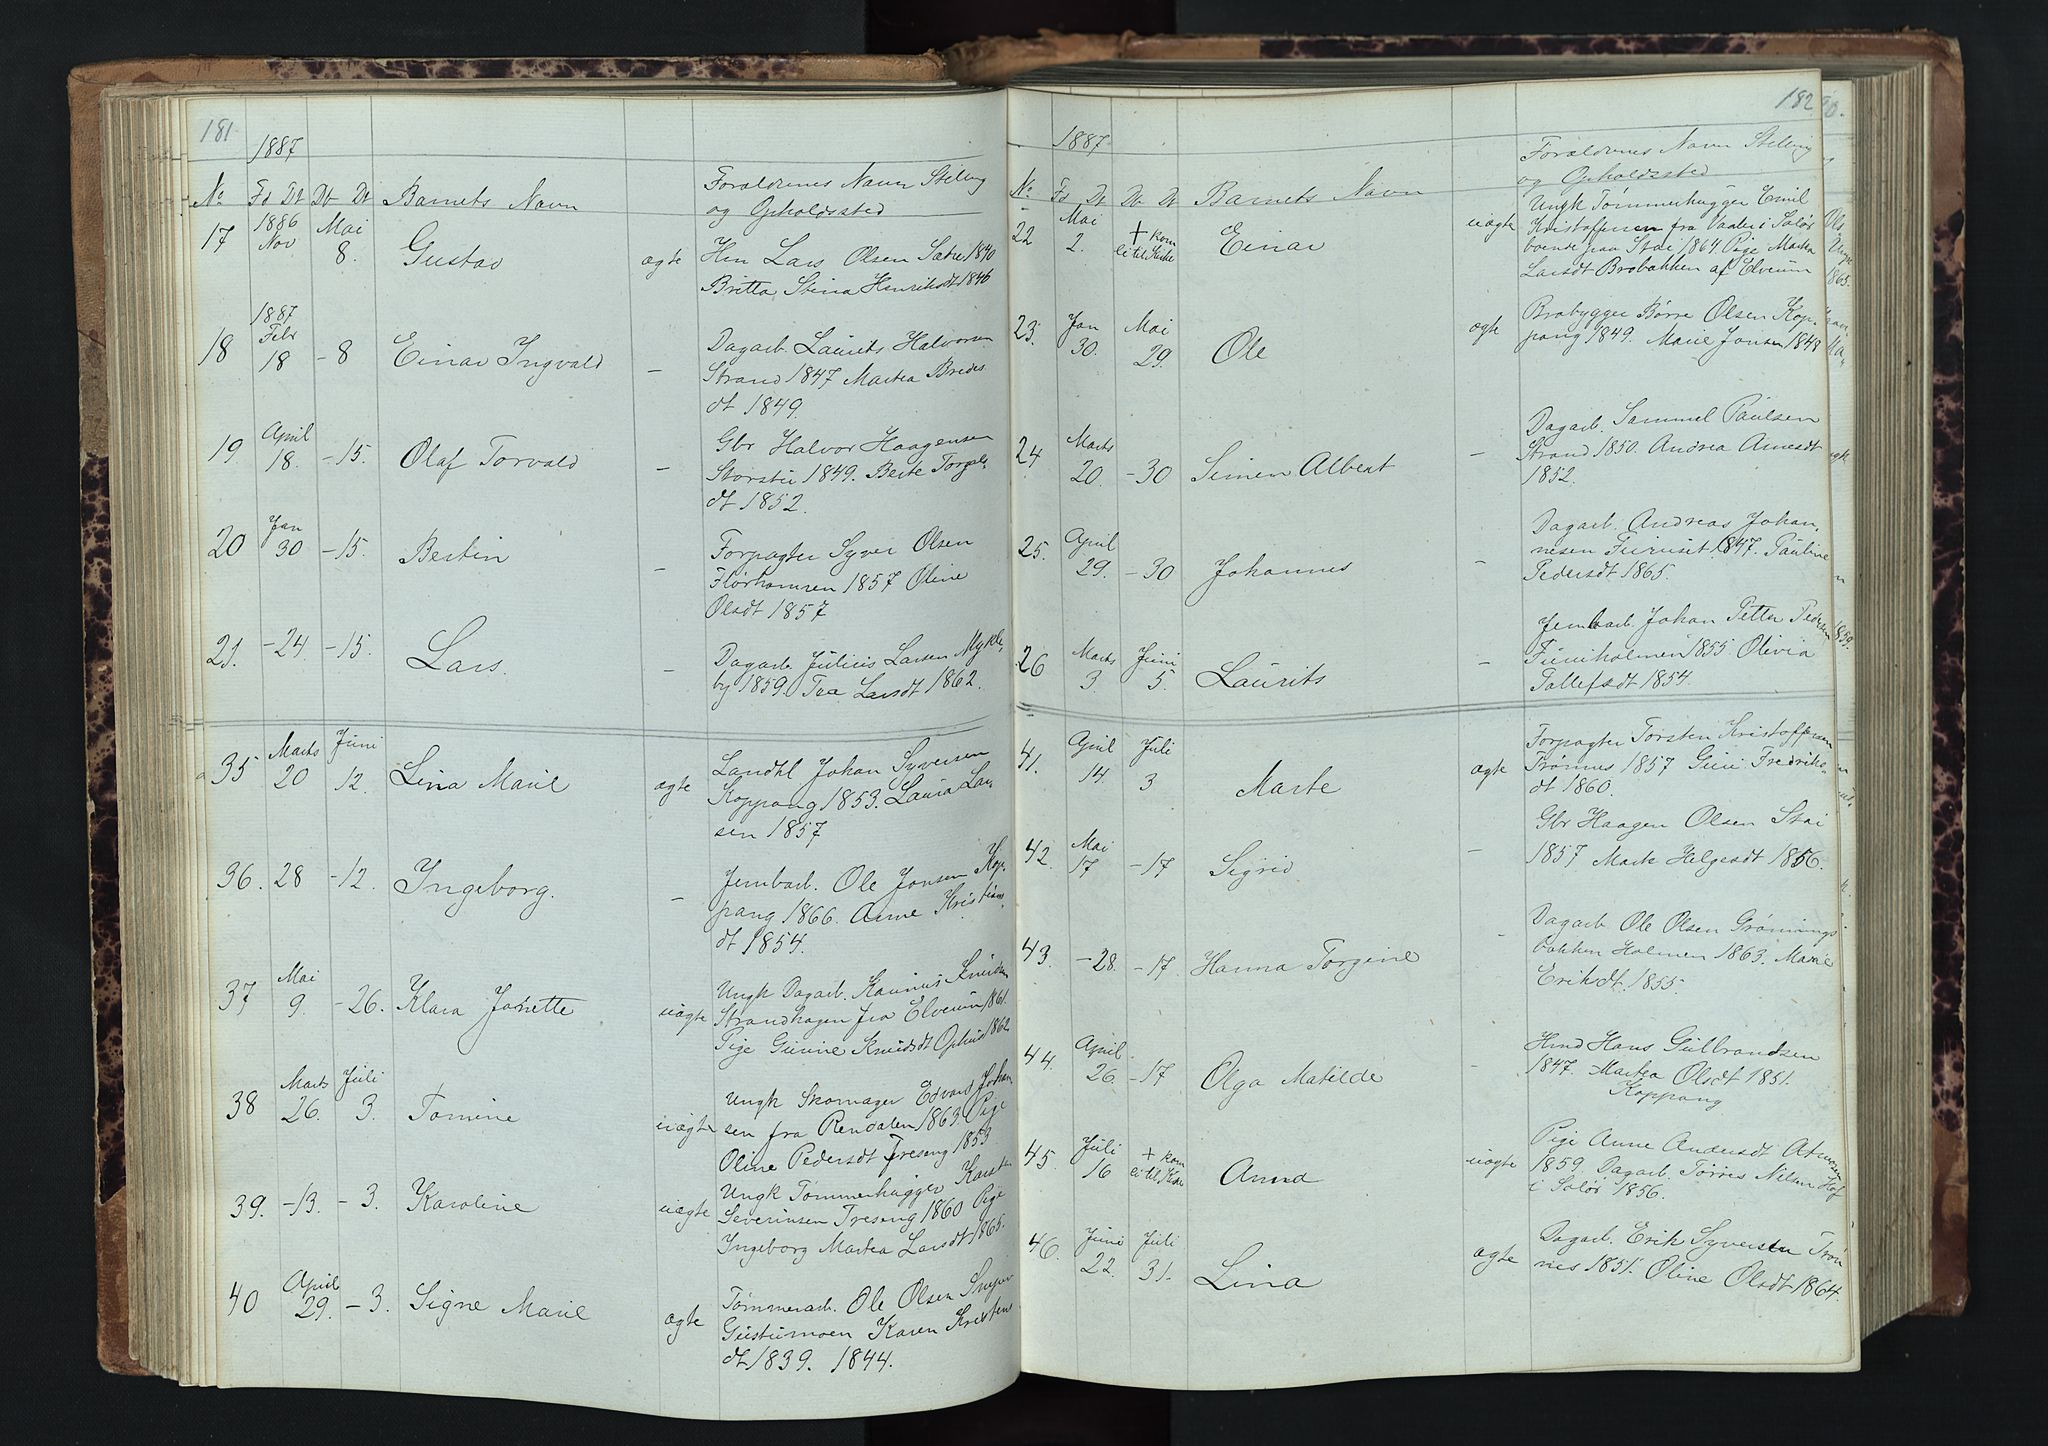 181
1887
No Fd Dt Db Dt Barnets Navn Foraldrenes Navn Stilling
og Opholdssted
17 1886 Nov Mai 8. Gustav ægte Hm Lars Olsen Sætre 1840
Britta Stina Henriksdt 1846
18 1887 Febr 18 - 8 Einar Ingvald - Dagarb. Laurits Halvorsen
Strand 1847 Martea Bredes
dt 1849.
19 April 18. - 15. Olaf Torvald - Gbr Halvor Haagensen
Storstu 1849. Berte Torgals
dt 1852.
20 Jan 30 - 15. Bertin - Forpagter Syver Olsen
1857 Oline
Olsdt 1857
21. - 24 - 15. Lars. - Dagarb. Julius Larsen Mykle
by 1859. Tea Larsdt 1862.
35 Marts 20 Juni 12. Lina Marie ægte Landhl Johan Syversen
Koppang 1853. Laura Lar
sen 1857
36. 28 - 12. Ingeborg. - Jernbarb. Ole Jonsen Kop
pang 1866. Anne Kristians
dt 1854.
37 Mai 9. - 26. Klara Janette uægte Ungk Dagarb. Knudsen
Strandhagen fra Elverum 1861.
Pige Gunine Knudsdt Ophus 1862
38 Marts 26. Juli 3. Tomine uægte Ungk Skomager Edvard Johan
sen fra Rendalen 1863. Pige
Oline Pedersdt Treseng 1853
39. - 13. - 3. Karoline uægte Ungk Tømmerhugger
Severinsen Treseng 1860 Pige
Ingeborg Martea Larsdt 1865.
40 April 29. - 3. Signe Marie ægte Tømmerarb. Ole Olsen
Gustumoen Karen Kristen
dt 1839. 1844.
182
1887
No Fd Dt Db Dt Barnets Navn Foraldrenes Navn Stilling
og Opholdssted
22 Mai 2. + kom ei til Kirke Einar uægte Ungk Tømmerhugger Emil
Kristoffersen fra Vaaler i Solør
boende paa Stai 1864 Pige Martea
Larsdt Brobakken af Elverum
23. Jan 30. Mai 29. Ole ægte Brobygger Børre Olsen Kop
pang 1849. Marie Jonsen 1848
24 Marts 20. - 30 Simen Albert - Dagarb. Sammel Paulsen
Strand 1850. Andrea Arnesdt
1852.
25. April 29. - 30 Johannes - Dagarb. Andreas Johan
nesen Furuset. 1847. Pauline
Pedersdt 1865.
26 Marts 3. Juni 5. Laurits - Jernbarb. Johan Petter Pedersen
Furuholmen 1855 Olivia
Tollefsdt 1854.
41. April 14. Juli 3 Marte ægte Forpagter Torsten Kristoffersen
Trønnes 1857 Guri Fredriks
dt 1860.
42. Mai 17 - 17 Sigrid - Gbr Haagen Olsen Stai
1857 Marte Helgesdt 1856.
43. - 28. - 17. Hanna Torgine - Dagarb Ole Olsen Grønnings
bakken Holmen 1863. Marie
Eriksdt. 1855.
44. April 26. - 17 Olga Matilde - Hmd Hans Gulbrandsen
1847. Martea Olsdt 1851.
Koppang
45. Juli 16 + kom ei til Kirke Anna uægte Pige Anne Andersdt Atneosen
1859. Dagarb. Tørres Nilsen Hof
i Solør 1856.
46. Juni 22. Juli 31. Lina ægte Dagarb. Erik Syversen Trøn
nes 1851. Oline Olsdt 1864.